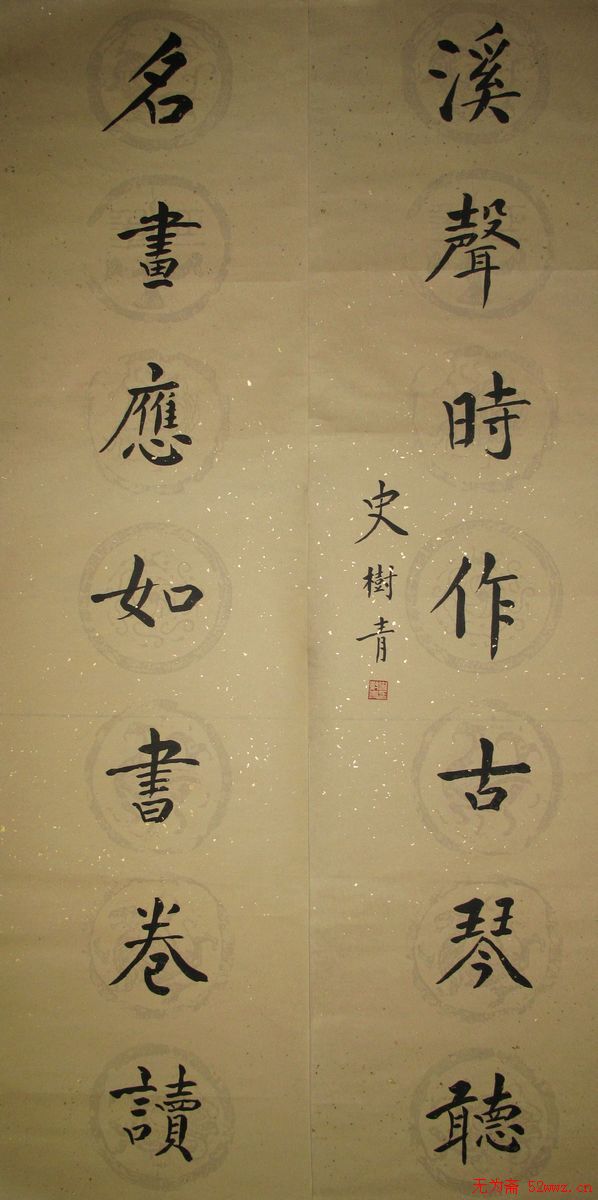 溪聲時作古琴聽
史樹青
名畫應如書卷讀
无为斋 52wwz.cn